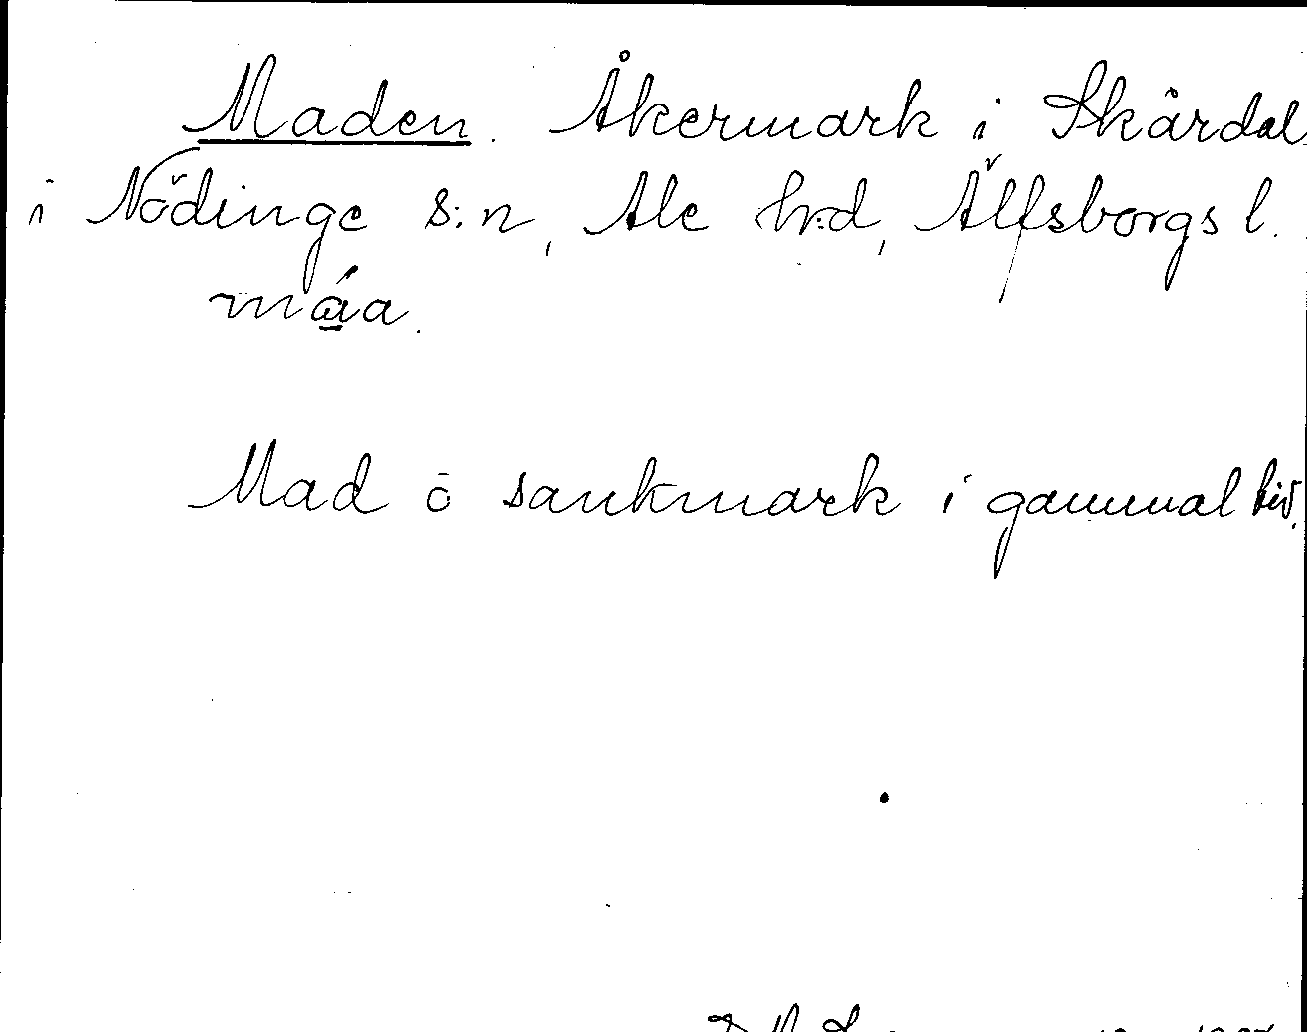 Maden. Åkermark i Skårdal
i Nödinge s:n, Ale h:d, Älfsborgs l.
máa.
Mad o sankmark i gammal tid.